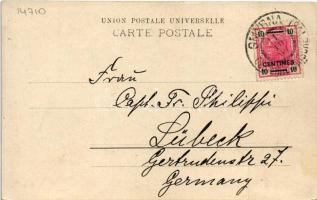 14710
UNION POSTALE UNIVERSELLE
CARTE POSTALE
10 10
CENTIMES
10 10
Frau
Capt. Fr. Philippi
Lübeck
Gertrudenstr 27.
Germany